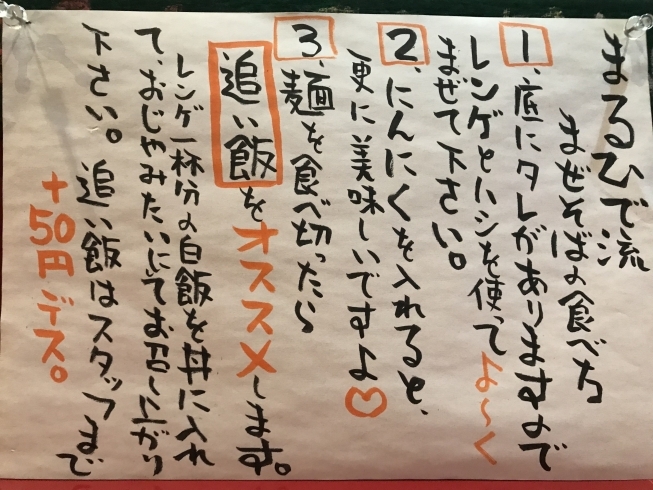 まるひで流
まぜそばの食べ方
1、底にタレがありますので
レンゲとハシを使ってよ〜く
まぜて下さい。
2、にんにくを入れると、
更に美味しいですよ♡
3、麺を食べ切ったら
追い飯をオススメします。
レンゲ一杯分の白飯を丼に入れ
て、おじやみたいにしてお召し上がり
下さい。追い飯はスタッフまで
+50円デス。